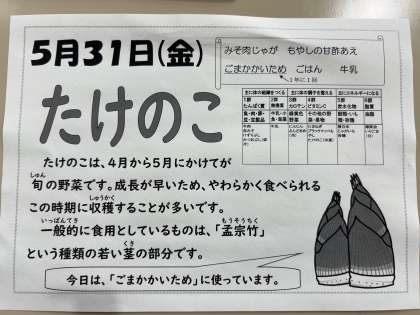 5月31日(金)
みそ肉じゃが　もやしの甘酢あえ
ごまかかいため　ごはん　牛乳
1年に1回
主に体の組織をつくる　主に体の調子を整える　主にエネルギーになる
1群　2群　3群　4群　5群　6群
たんぱく質　無機質　カロテン　ビタミンC　炭水化物　脂質
たけのこ
たけのこは、4月から5月にかけてが
しゅん
旬の野菜です。成長が早いため、やわらかく食べられる
しゅうかく
この時期に収穫することが多いです。
いっぱんてき　もうそうちく
一般的に食用としているものは、「孟宗竹」
くき
という種類の若い茎の部分です。
今日は、「ごまかかいため」に使っています。